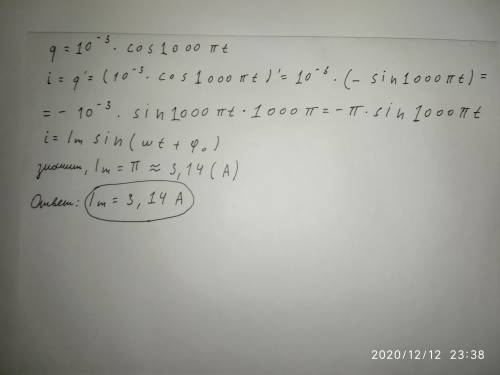 q = 10⁻³ · cos 1000 πt
i = q' = (10⁻³ · cos 1000 πt)' = 10⁻⁶ · (- sin 1000 πt) =
= - 10⁻³ · sin 1000 πt · 1000 π = - π · sin 1000 πt
i = Im sin (ωt + φ₀)
значит, Im = π ≈ 3,14 (A)
Ответ: Im = 3,14 A
2020/12/12 23:38